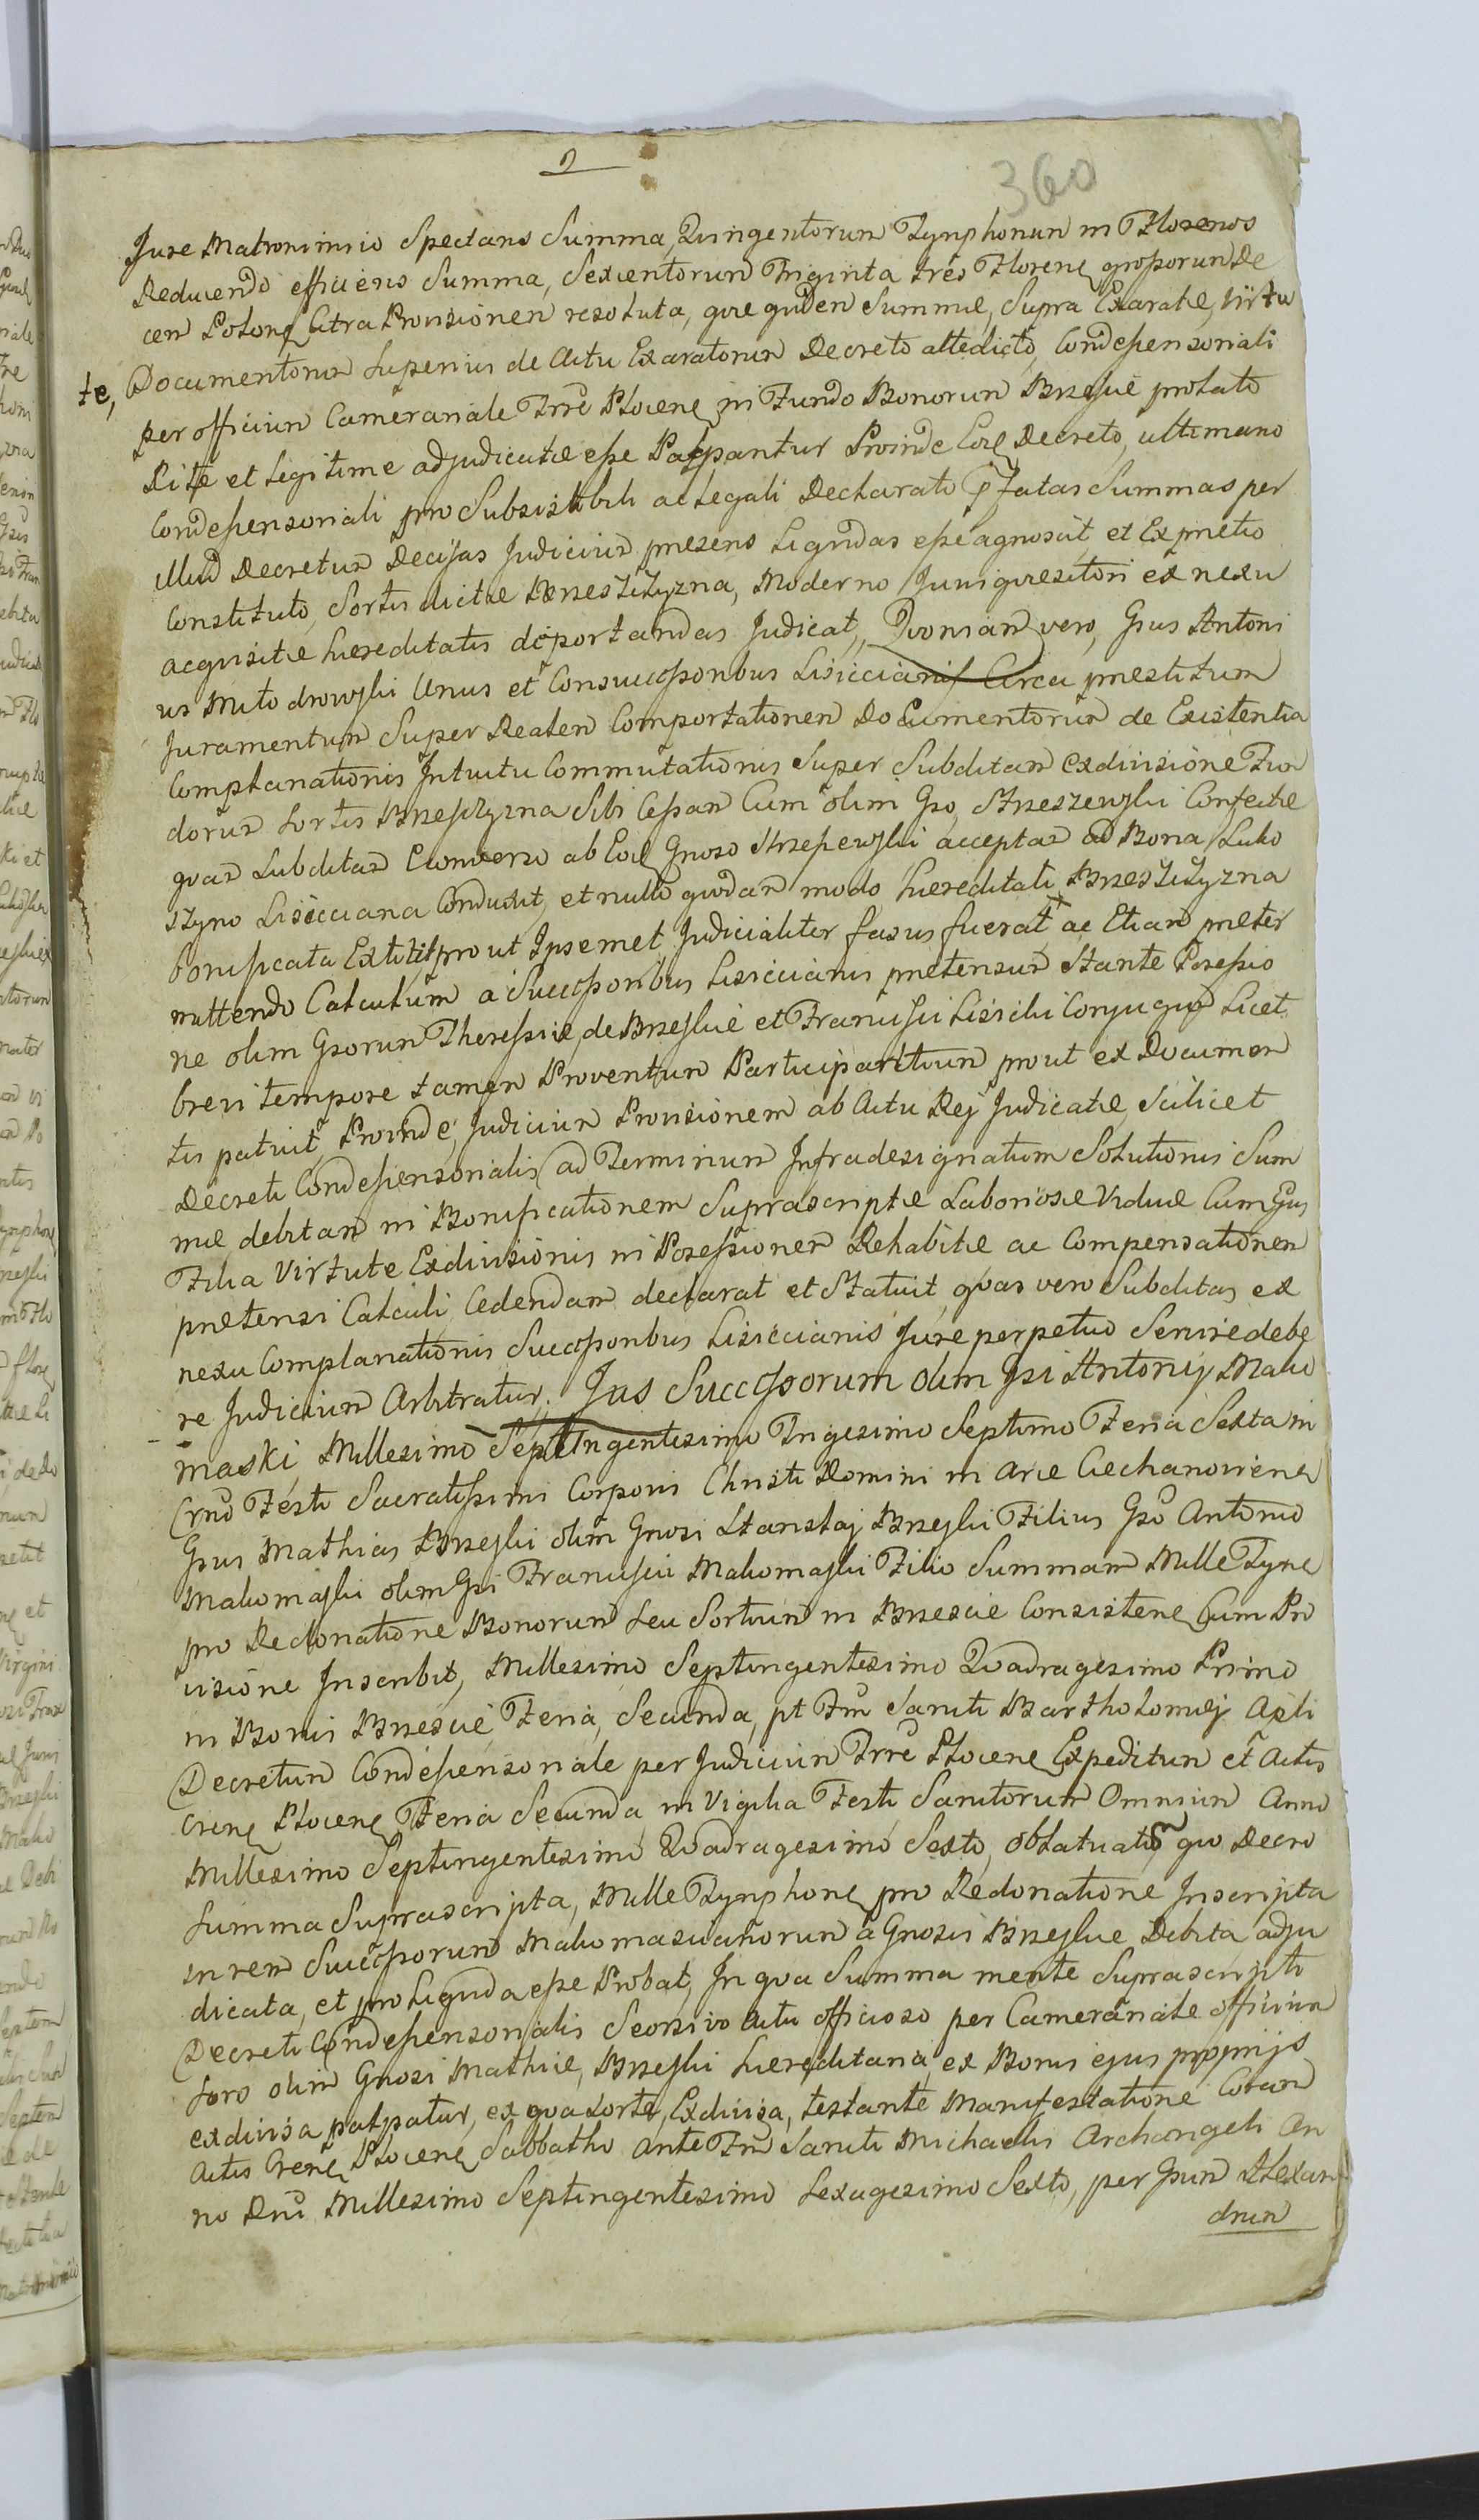 2
360
Jure Matrimonio Spectans Summa, Quingentorum Tynphonum in Florenos
Reducendo efficiens Summa, Sexcentorum Triginta tres Floreng grossorum De
cem Polong Citra Provisionem resoluta, quæ quidem Summæ, Supra Exaratæ, Virtu
te, Documentorum Superius de Actu Exaratorum Decreto attedicto Condescensoriali
per officium Camerariale Trrē Plocene in Fundo Bonorum Brzeskie prolato
Rite et Legitime adjudicatæ esse Palpantur Proinde Eod Decreto, ultimario
Condescensoriali pro Subsistibili ac Legali Declarato Pfatas Summas per
illud Decretum Decisas Judicium præsens Liquidas esse agnoscit, et Ex pretio
Constituto, Sortis dictæ Brzeszczyzna, Moderno Jurisquæsitori ex nexu
acquisitæ hæreditatis deportandas Judicat, Quoniam vero, Gsus Antoni
us Młodrowski Unus et Consuccessoribus Lisiccianis Circa præstitum
Juramentum Super Realem Comportationem Documentorum de Existentia
Complanationis Intuitu Commutationis Super Subditam ex divisione Fun
dorum Sortis Brzeszczyzna Sibi Cessam Cum olim Gso Strzeszewski Confectæ
quam Subditam E converso ab Eod Gnoso Strzeszewski acceptam ad Bona Luko
szyno Lisicciana Conduxit, et nullo quodam modo hæreditati Brzeszczyzna
bonificata Extitit prout Ipsemet Judicialiter fassus fuerat ac Etiam præter
mittendo Calculum a Successoribus Lisiccianis prætensum Stante Possessio
ne olim Gsorum Theressiæ de Brzeskie et Francisci Lisicki Conjugum Licet
brevi tempore tamen Proventum Participantium prout ex Documen
tis patuit, Proinde, Judicium Provisionem ab Actu Rej Judicatæ, Scilicet
Decreti Condescensorialis ad Terminum Infradesignatum Solutionis Sum
mæ debitam in Bonificationem Suprascriptæ Laboriosæ Viduæ Cum Ejus
Filia Virtute Exdivisionis in Possessionem Rehabitæ ac Compensationem
prætensi Calculi, Cedendam declarat et Statuit, quas vero Subditas ex
nexu Complanationis Successoribus Lisiccianis Jure perpetuo Servire debe
re Judicium Arbitratur. Jus Successorum olim Gsi Antonij Mako
maski, Millesimo Septingentesimo Trigesimo Septimo Feria Sexta in
Crno Festi Sacratissimi Corporis Christi Domini in Arce Ciechanoviene
Gsus Mathias Brzeski olim Gnosi Stanislaj Brzeski Filius Gso Antonio
Makomaski olim Gsi Francisci Makomaski Filio Summam Mille Tyne
pro Redonatione Bonorum Seu Sortium in Brzescie Consistene Cum Pro
visione Inscribit, Millesimo Septingentesimo Quadragesimo Primo
in Bonis Brzescie, Feria, Secunda, pt Fm Sancti Bartholomæj Apli
Decretum Condescensoriale per Judicium Trre Plocene Expeditum et Actis
Crene Plocene, Feria Secunda in Vigilia Festi Sanctorum Omnium Anno
Millesimo Septingentesimo Quadragesimo Sexto, oblatuatum quo Decro
Summa Suprascripta, Mille Tynphone pro Redonatione Inscripta
in rem Successorum Makomascianorum a Gnosis Brzeskie Debita adju
dicata, et pro Liquida esse Probat, In qua Summa mente Suprascripti
Decreti Condescensorialis Seorsivo Actu officioso per Camerariale officium
Soro olim Gnosi Mathiæ, Brzeski hæreditaria, ex Bonis ejus proprijs
exdivisa palpatur, ex qua Sorte, Exdivisa, testante Manifestatione Coram
Actis Crene Plocene Sabbatho Ante Fm Sancti Michaelis Archangeli An
no Dni Millesimo Septingentesimo Sexagesimo Sexto, per Gsum Alexan
drum